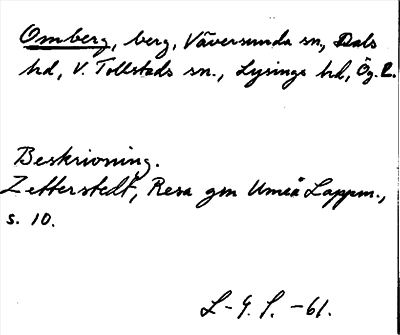 Omberg, berg, Väversunda sn, Dals
hd, V. Tollstads sn., Lysings hd, Ög. L.
Beskrivning.
Zetterstedt, Resa gm Umeå Lappm.,
s. 10.
L-G. S. -61.